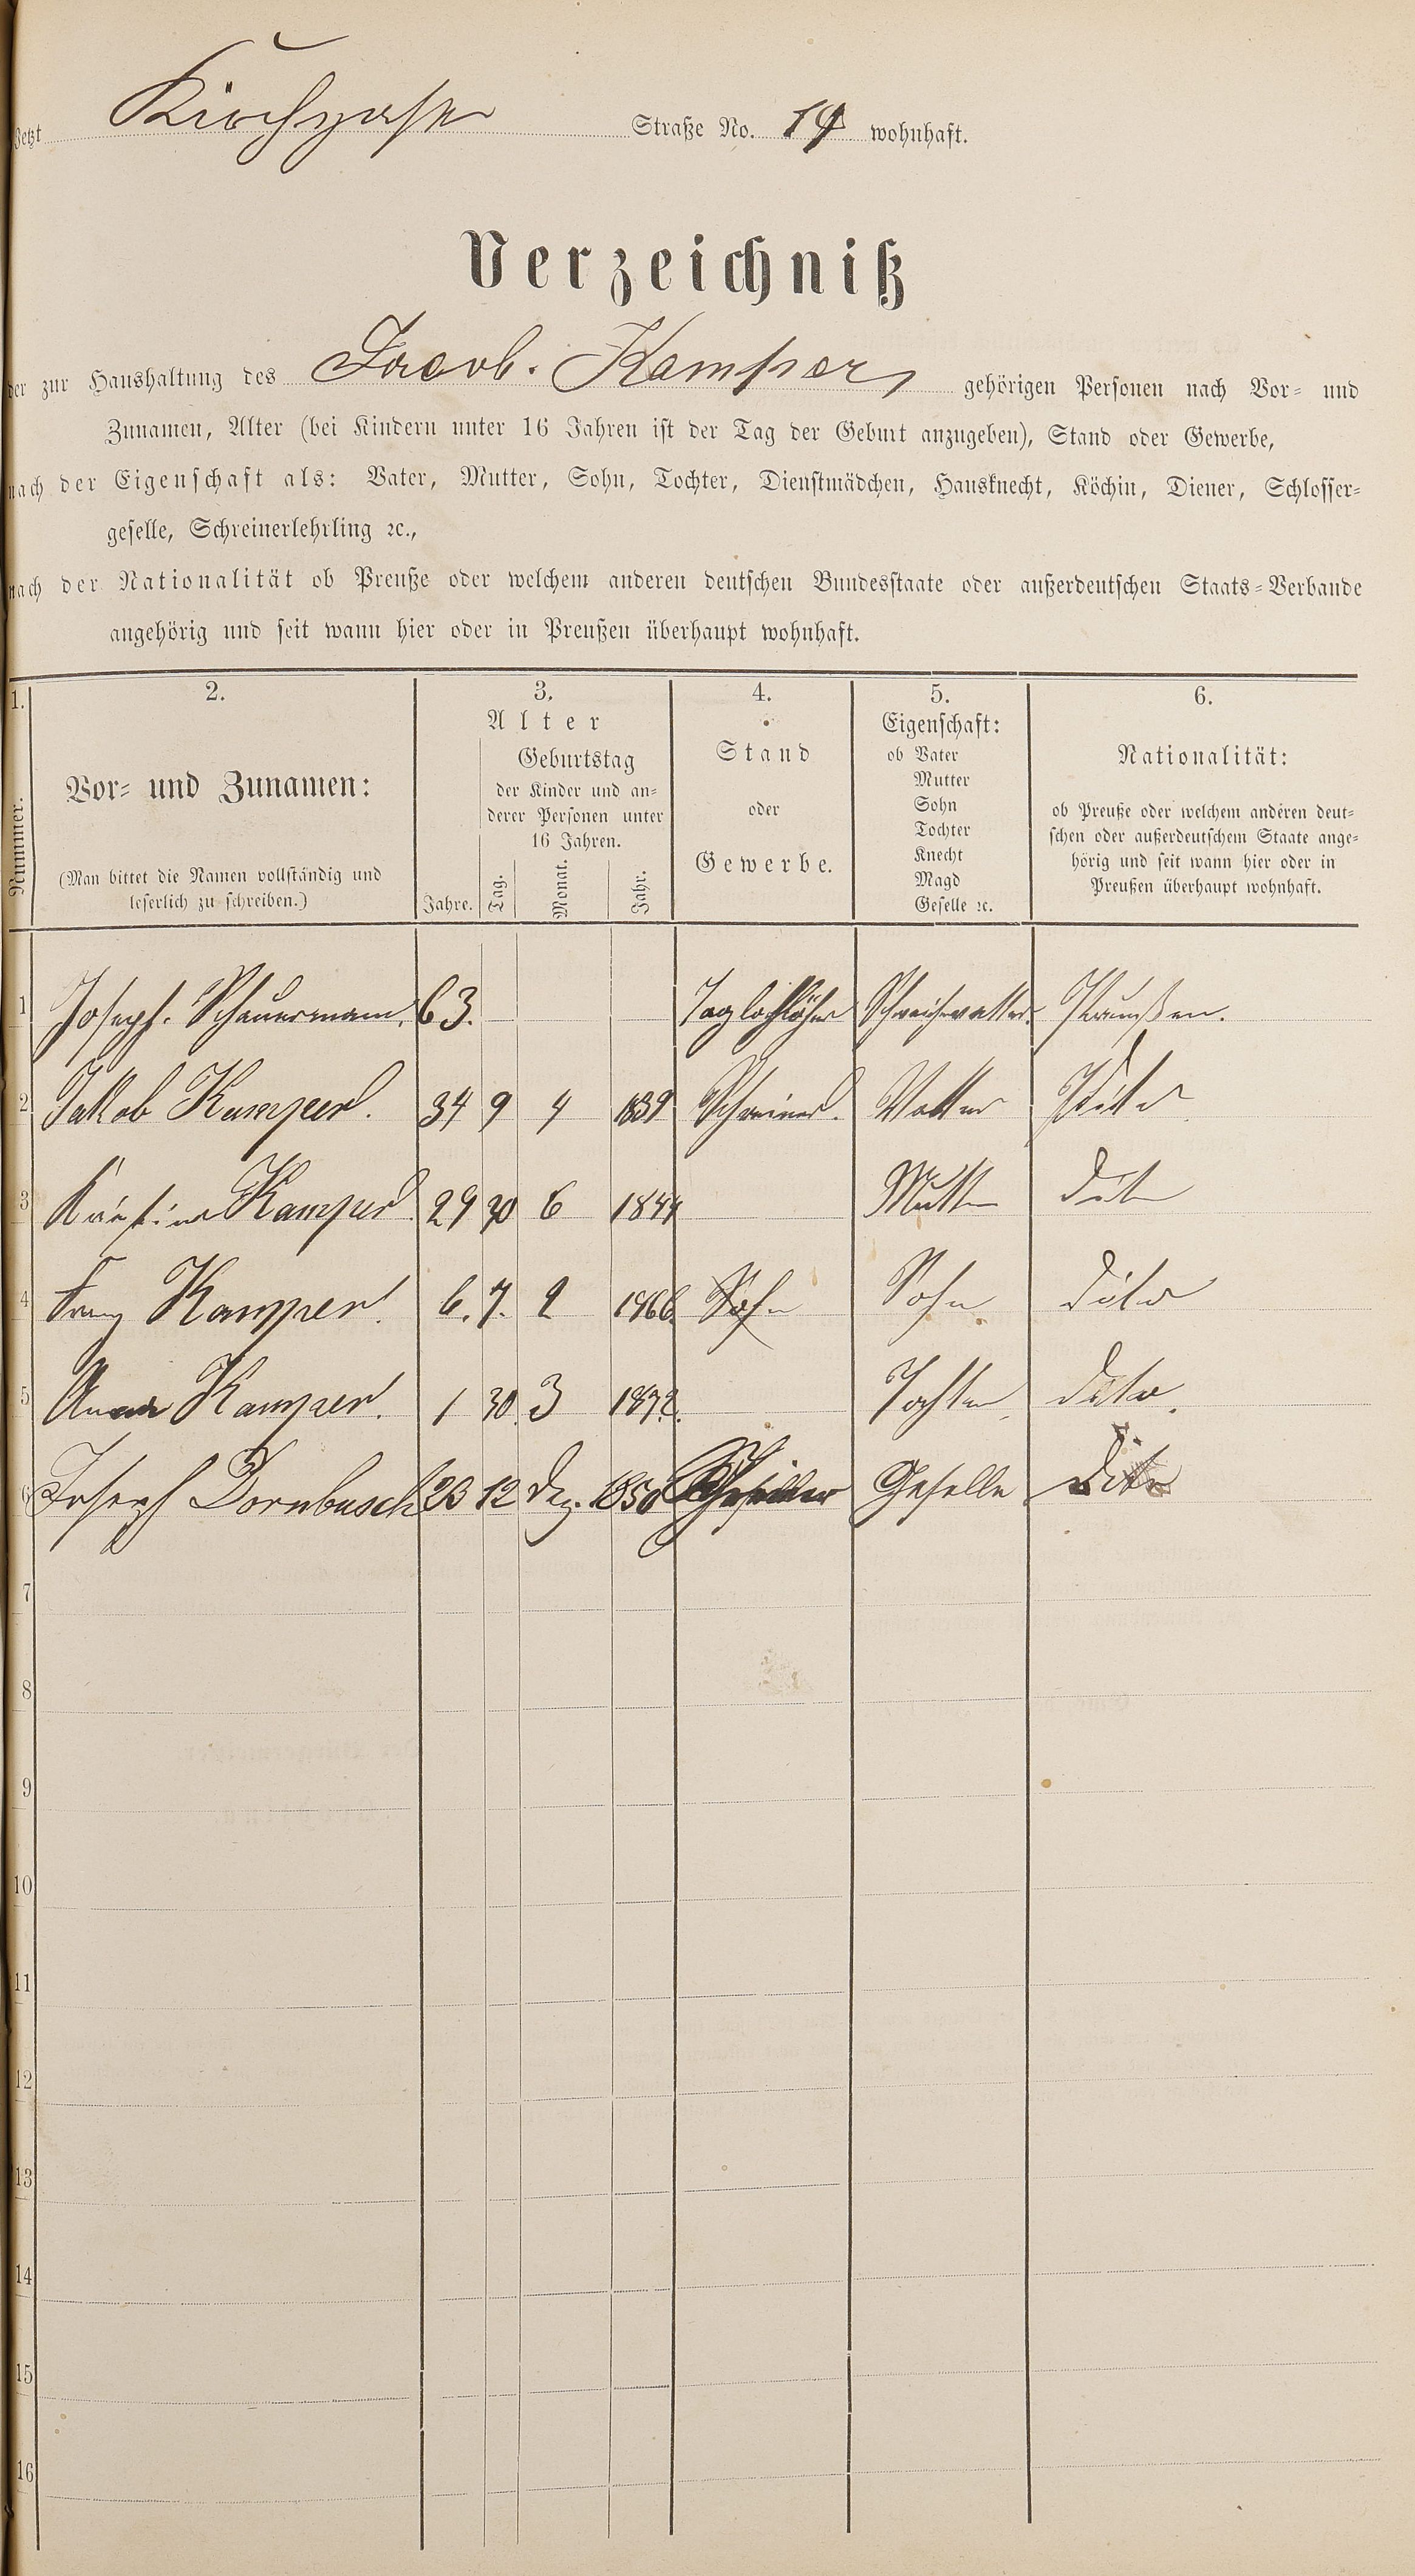 Jetzt Kirchgasse Straße No. 19 wohnhaft.
Verzeichniß
der zur Haushaltung des Jacob. Kamper, gehörigen Personen nach Vor- und
Zunamen, Alter (bei Kindern unter 16 Jahren ist der Tag der Geburt anzugeben), Stand oder Gewerbe,
nach der Eigenschaft als: Vater, Mutter, Sohn, Tochter, Dienstmädchen, Hausknecht, Köchin, Diener, Schlosser-
geselle, Schreinerlehrling ꝛc.,
nach der Nationalität ob Preuße oder welchem anderen deutschen Bundesstaate oder außerdeutschen Staats-Verbande
angehörig und seit wann hier oder in Preußen überhaupt wohnhaft.
1.
Nummer.
2.
Vor- und Zunamen:
(Man bittet die Namen vollständig und
leserlich zu schreiben.)
3.
Alter
Jahre.
Geburtstag
der Kinder und an-
derer Personen unter
16 Jahren.
Tag.
Monat.
Jahr.
4.
Stand
oder
Gewerbe.
5.
Eigenschaft:
ob Vater
Mutter
Sohn
Tochter
Knecht
Magd
Geselle ꝛc.
6.
Nationalität:
ob Preuße oder welchem anderen deut-
schen oder außerdeutschem Staate ange-
hörig und seit wann hier oder in
Preußen überhaupt wohnhaft.
1 Joseph. Scheuermann. 63. Preußen.
2 Jakob Kamper. 34 9 4 1839 Schreiner. Vatter Dito
3 Kamper. 29 30 6 1844 Mutter Dito
4 Franz Kamper. 6. 7. 9 1866 Sohn Sohn Dito
5 Anna Kamper. 1 30 3 1872. Tochter Dito.
6 Joseph Dornbusch 23 12 Dez. 1850 Geselle Dito
7
8
9
10
11
12
13
14
15
16